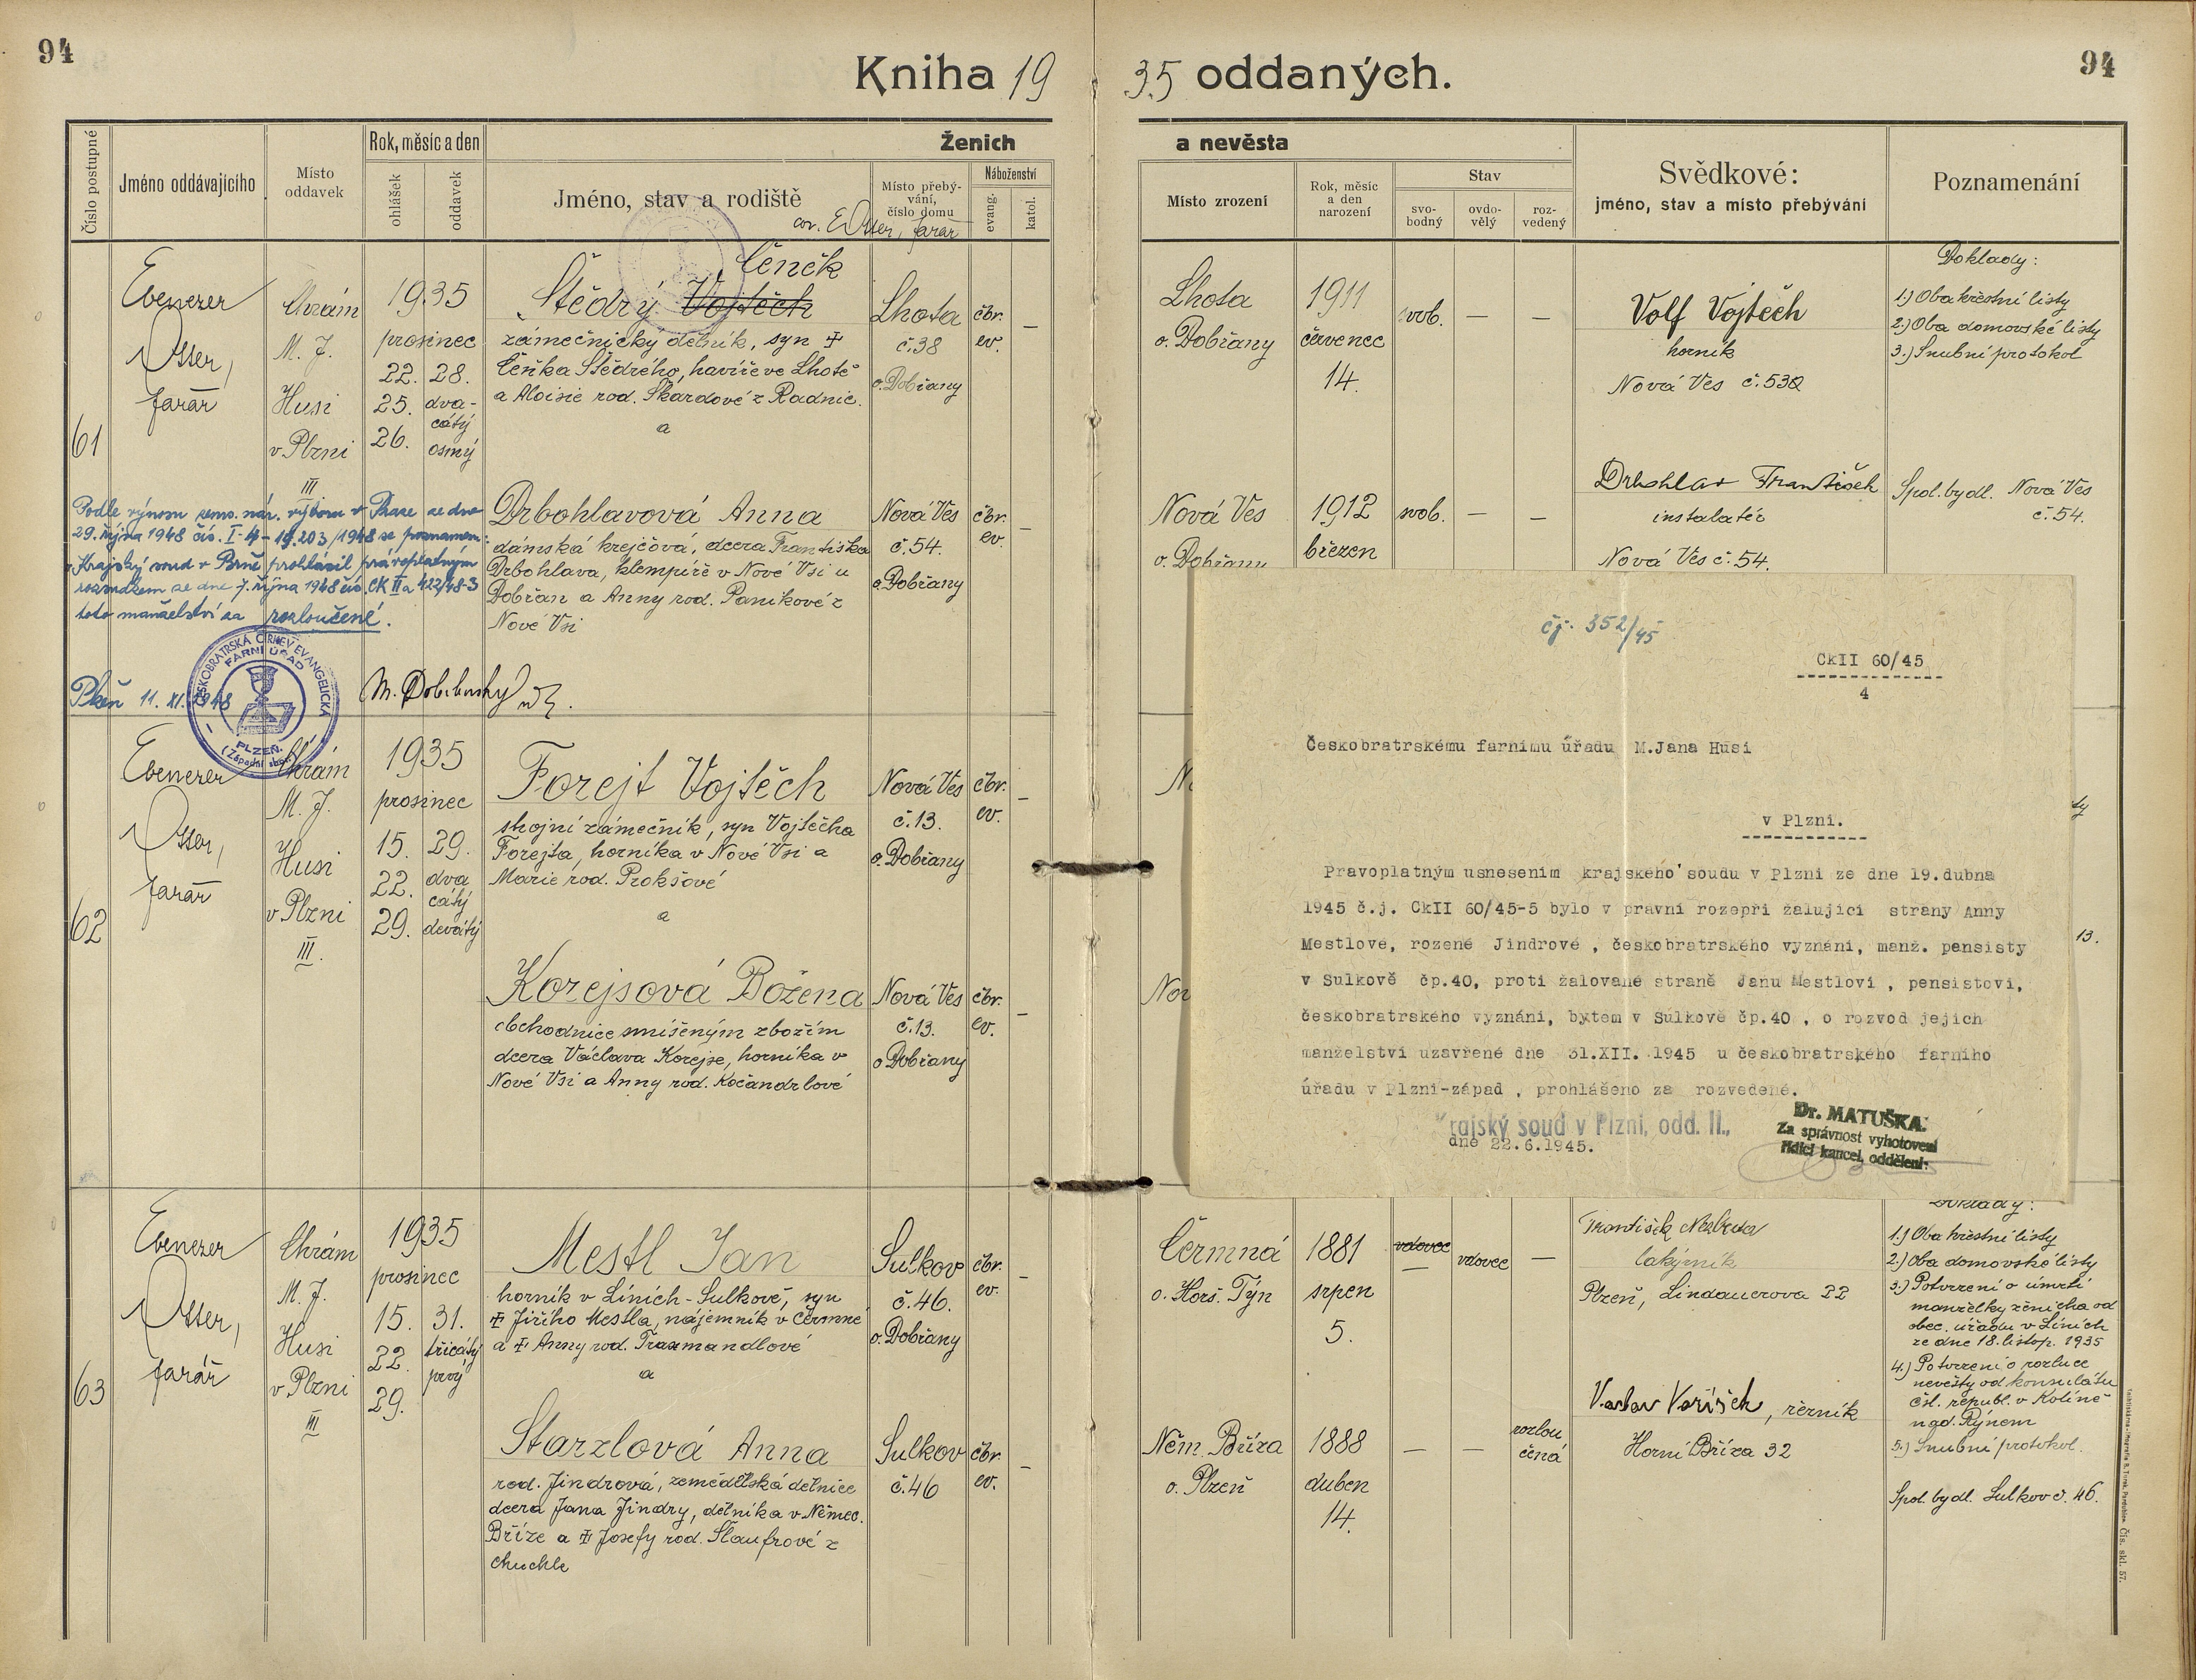 94
94
Kniha 19
35 oddaných.
Číslo postupné
Jméno oddávajícího
Místo
oddavek
Rok, měsíc a den
ohlášek
oddavek
Ženich
Jméno, stav a rodiště
Místo přebý-
vání,
číslo domu
Náboženství
evang.
katol.
a nevěsta
Místo zrození
Rok, měsíc
a den
narození
Stav
svo-
bodný
ovdo-
vělý
roz-
vedený
Svědkové:
jméno, stav a místo přebývání
Poznamenání
cor. E Otter, farář
61
Ebenezer
Otter,
farář
Chrám
M. J.
Husi
v Plzni
III
1935
prosinec
22. 28.
25. dva-
cátý
26. osmý
Čeněk
Štědrý Vojtěch
zámečnický dělník, syn
Čeňka Štědrého, havíře ve Lhotě
a Aloisie rod. Škardové z Radnic.
a
Lhota
č.38
o. Dobřany
čbr.
ev.
—
Lhota
o. Dobřany
1911
červenec
14.
svob.
—
—
Volf Vojtěch
horník
Nová Ves č.53
Doklady:
1.) Oba křestní listy
2.) Oba domovské listy
3.) Snubní protokol
Drbohlavová Anna
dámská krejčová, dcera Františka
Drbohlava, klempíře v Nové Vsi u
Dobřan a Anny rod. Paníkové z
Nové Vsi
Nová Ves
č.54.
o. Dobřany
čbr.
ev.
—
Nová Ves
o. Dobřany
1912
březen
svob.
—
—
Drbohlav František
instalatér
Nová Ves č.54.
Spol. bydl. Nová Ves
č.54.
Podle výnosu zems. nár. výboru v Praze ze dne
29. října 1948 čís. I-4- 19.203/1948 se poznamen:
Krajský soud v Brně prohlásil právoplatným
rozsudkem ze dne 7. října 1948 čís. CK II a 422/48-3
toto manželství za rozloučené.
Plzeň 11. XI. 1948
ČESKOBRATRSKÁ CÍRKEV EVANGELICKÁ
FARNÍ ÚŘAD
PLZEŇ.
(Západní sbor)
62
Ebenezer
Otter,
farář
Chrám
M. J.
Husi
v Plzni
III.
1935
prosinec
15. 29.
22. dva
cátý
29. devátý
Forejt Vojtěch
strojní zámečník, syn Vojtěcha
Forejta, horníka v Nové Vsi a
Marie rod. Prokšové
a
Nová Ves
č.13.
o. Dobřany
čbr.
ev.
—
Korejsová Božena
obchodnice smíšeným zbožím
dcera Václava Korejse, horníka v
Nové Vsi a Anny rod. Kočandrlové
Nová Ves
č.13.
o Dobřany
čbr.
ev.
—
No
Nov
ty
13.
čj. 352/45
CkII 60/45
4
Českobratrskému farnímu úřadu M.Jana Husi
v Plzni.
Pravoplatným usnesením krajského soudu v Plzni ze dne 19.dubna
1945 č.j. CkII 60/45-5 bylo v právní rozepři žalující strany Anny
Mestlové, rozené Jindrové , českobratrského vyznání, manž. pensisty
v Sulkově čp.40, proti žalované straně Janu Mestlovi , pensistovi,
českobratrského vyznání, bytem v Sulkově čp.40 , o rozvod jejich
manželství uzavřené dne 31.XII. 1945 u českobratrského farního
úřadu v Plzni-západ , prohlášeno za rozvedené.
rajský soud v Plzni, odd. II.,
dne 22.6.1945.
Dr. MATUŠKA.
Za správnost vyhotovení
řídící kancel. oddělení:
63
Ebenezer
Otter,
farář
Chrám
M. J.
Husi
v Plzni
III
1935
prosinec
15. 31.
22. třicátý
prvý
29.
Mestl Jan
horník v Líních-Sulkově, syn
Jiřího Mestla, nájemník v Čermné
a Anny rod. Traxmandlové
a
Sulkov
č.46.
o. Dobřany
čbr.
ev.
—
Čermná
o. Horš. Týn
1881
srpen
5.
vdovec
—
vdovec
—
František
lakýrník
Plzeň, Lindauerova 22
Doklady:
1.) Oba křestní listy
2.) Oba domovské listy
3.) Potvrzení o úmrtí
manželky ženicha od
obec. úřadu v Líních
ze dne 18. listop. 1935
4.) Potvrzení o rozluce
nevěsty od konsulátu
čsl. republ. v Kolíně
nad Rýnem
5.) Snubní protokol.
Spol. bydl. Sulkov č. 46.
Starzlová Anna
rod. Jindrová, zemědělská dělnice
dcera Jana Jindry, dělníka v Němec.
Bříze a Josefy rod. Štaufrové z
Chuchle
Sulkov
č.46
čbr.
ev.
—
Něm. Bříza
o. Plzeň
1888
duben
14.
—
—
rozlou
čená
Václav Voříšek, řezník
Horní Bříza 32
Čís. skl. 57.